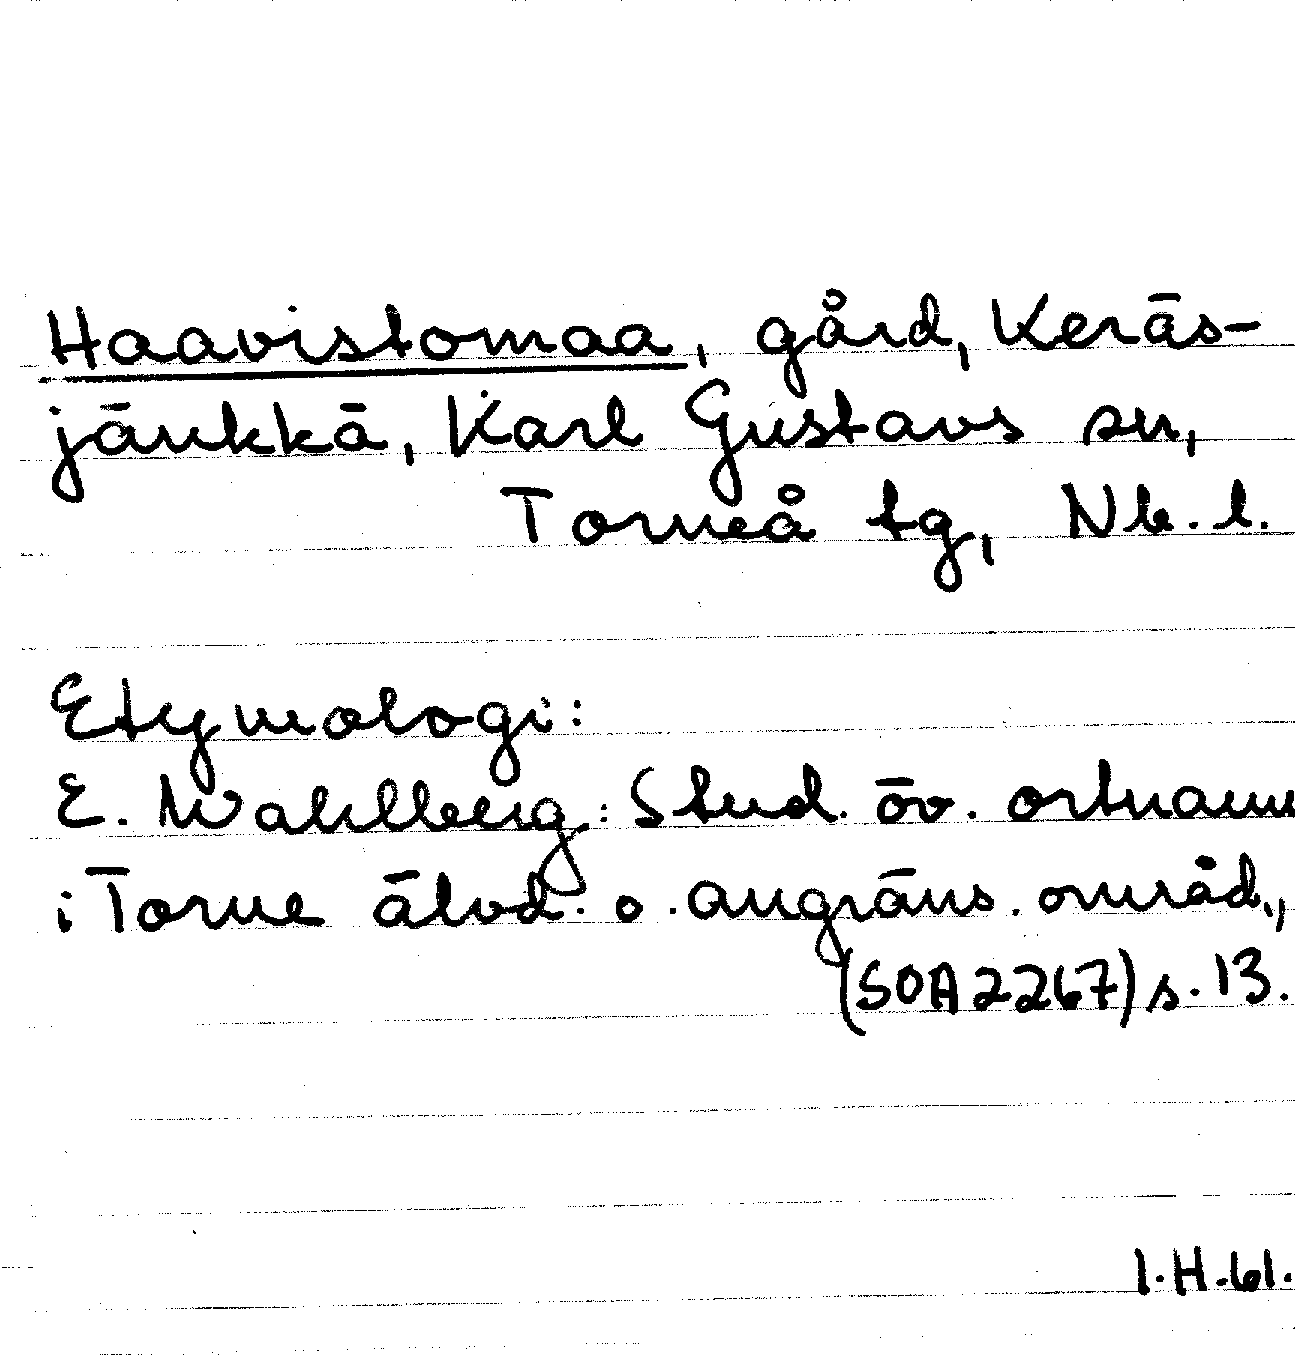 Haavistomaa, gård, Keräs-
jänkkä, Karl Gustavs sn,
Torneå tg, Nb. l.
Etymologi:
E. Wahlberg: Stud. öv. ortnamn
i Torne älvd. o. angräns. områd.,
(SOA 2267) s. 13.
I.H.61.